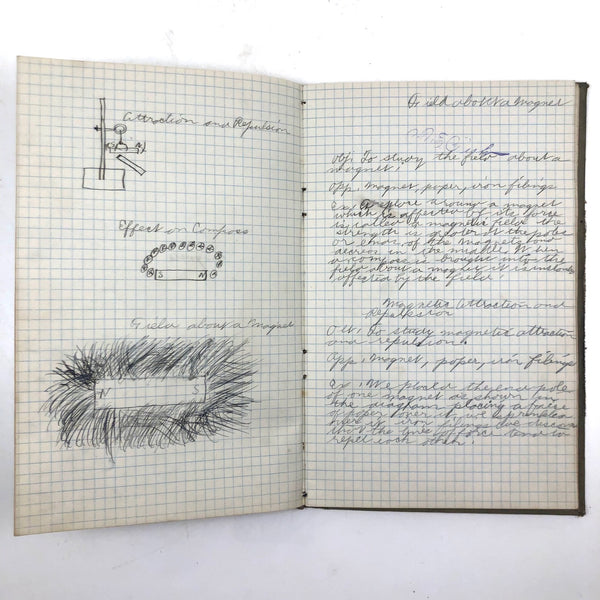 Attraction and Repulsion
Effect on Compass
S N
Field about a Magnet
N
Field about a Magnet
Obj: To study the field about a
magnet.
App: Magnet, paper, iron filings
Ex: A sphere around a magnet
which is affected by its force
is called a magnetic field the
strength is greater at the poles
or ends of the magnets and
decres in the middle. When
a compass is brought into the
field about a magnet it is
affected by the field.
Magnetic Attraction and
Repulsion
Obj: To study magnetic attraction
and repulsion.
App: Magnet, paper, iron filings
Ex: We placed the end pole
of one magnet as shown in
the diagram placing a piece
of paper over it we sprinkled
iron filings and discov
that the line of force tend to
repel each other.